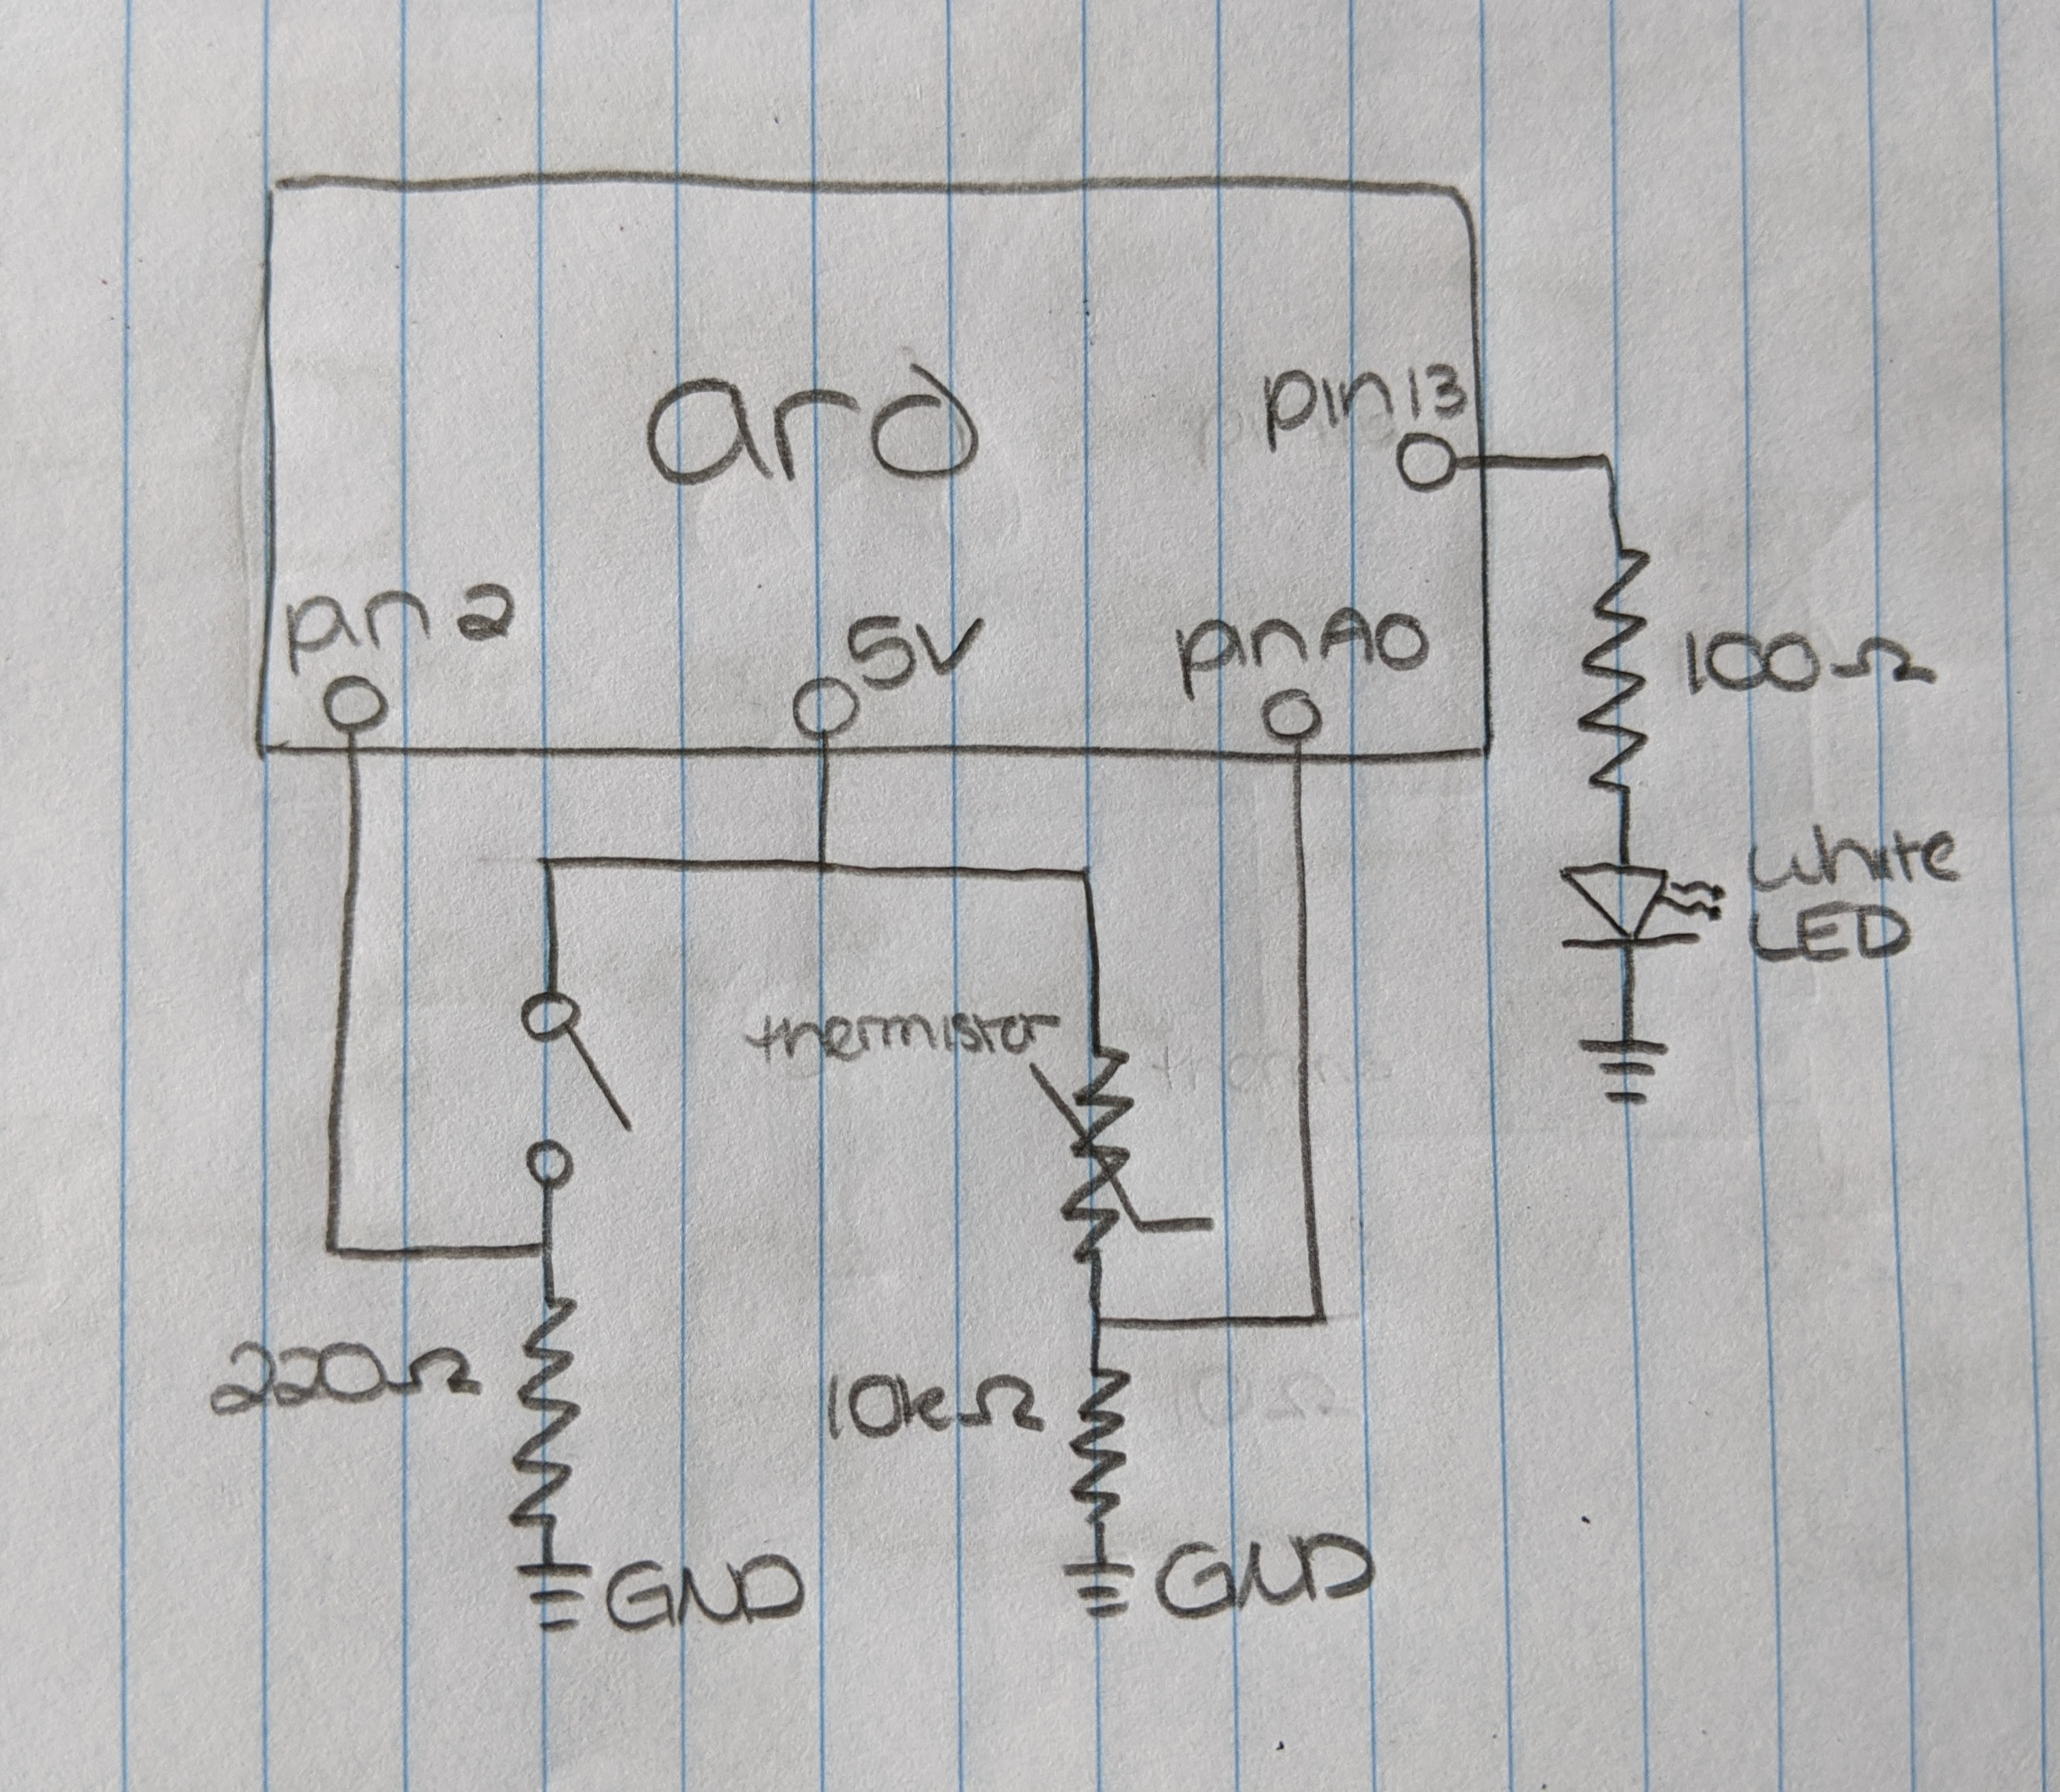 ard
pin 13
pin 2
5V
pin A0
100Ω
white
LED
thermistor
220Ω
10kΩ
GND
GND